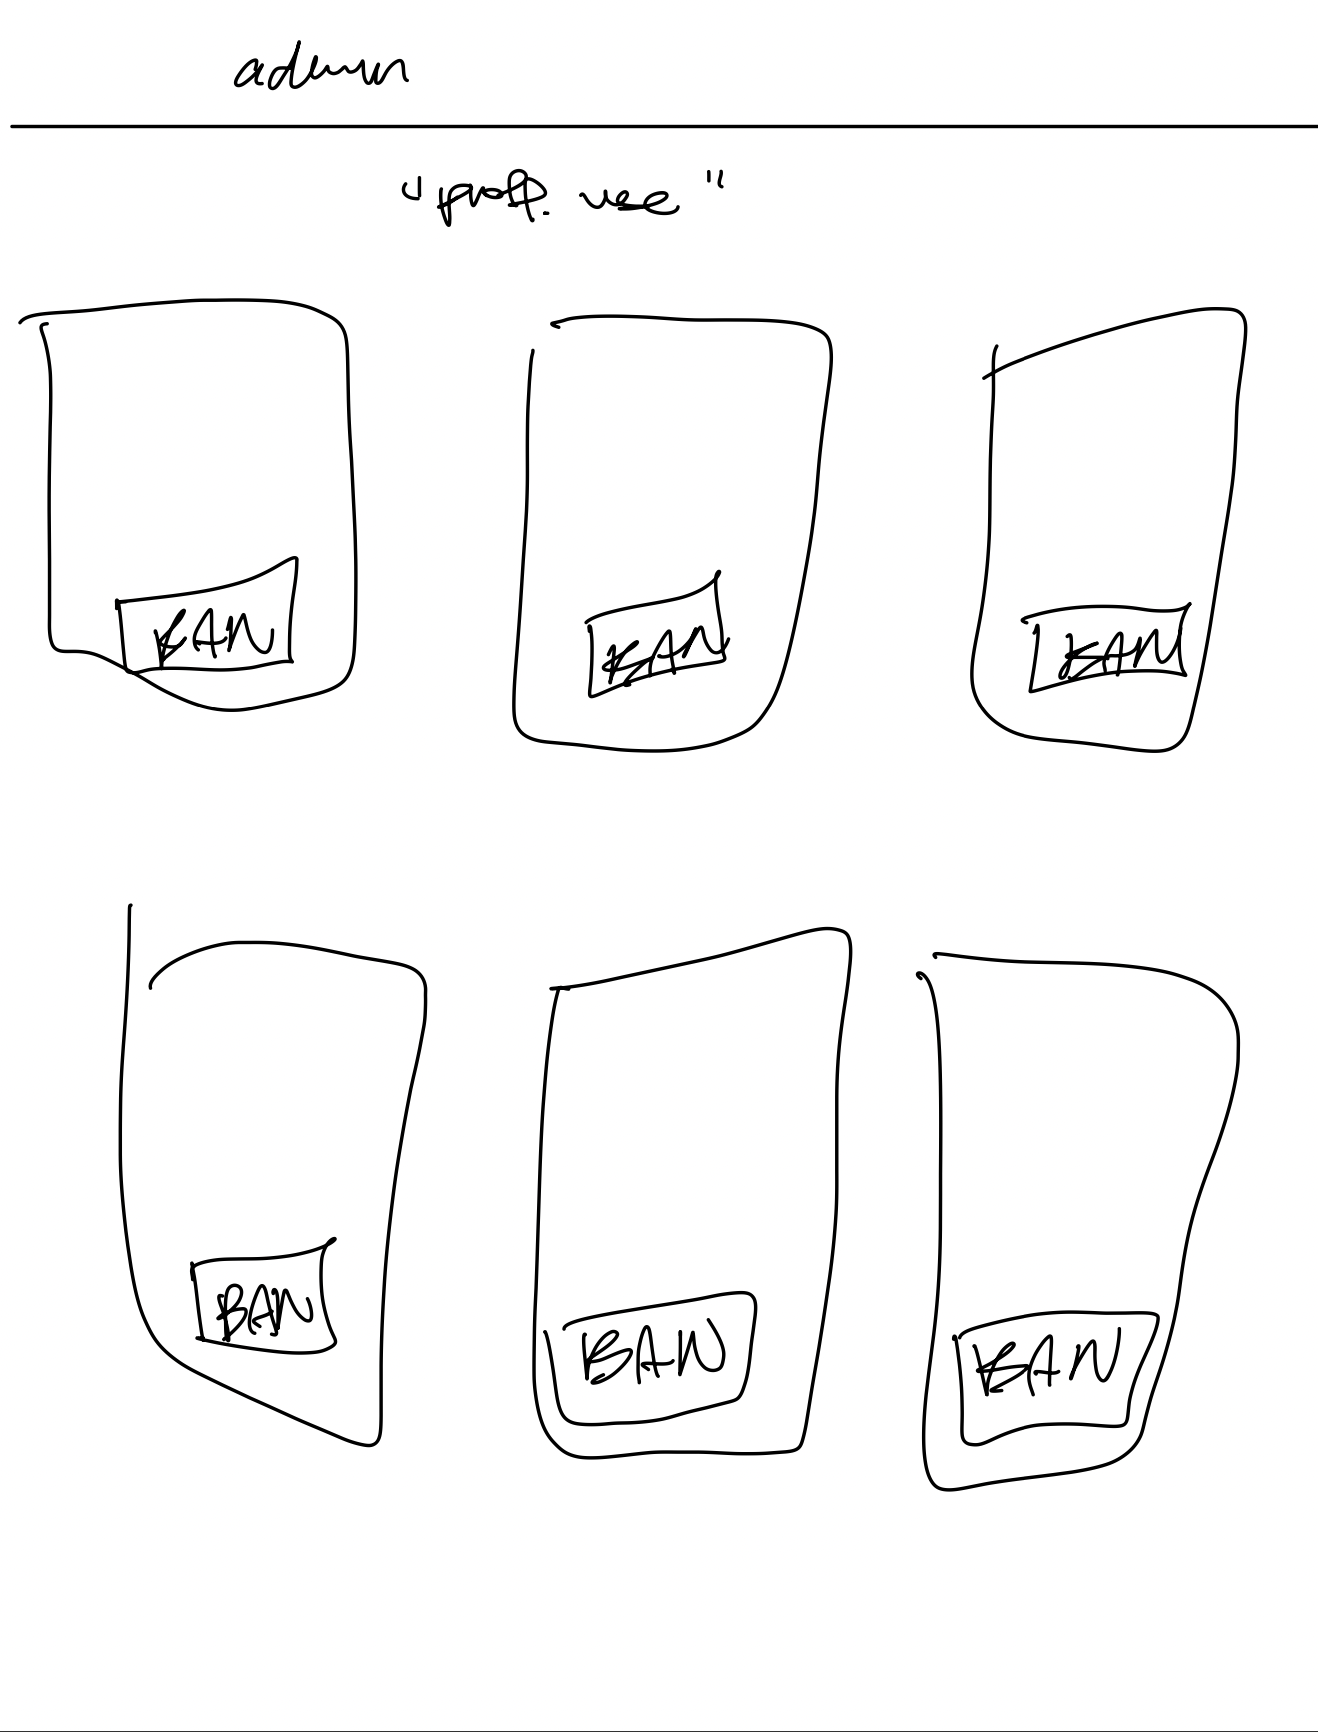 admin
"prof. use"
BAN
BAN
BAN
BAN
BAN
BAN